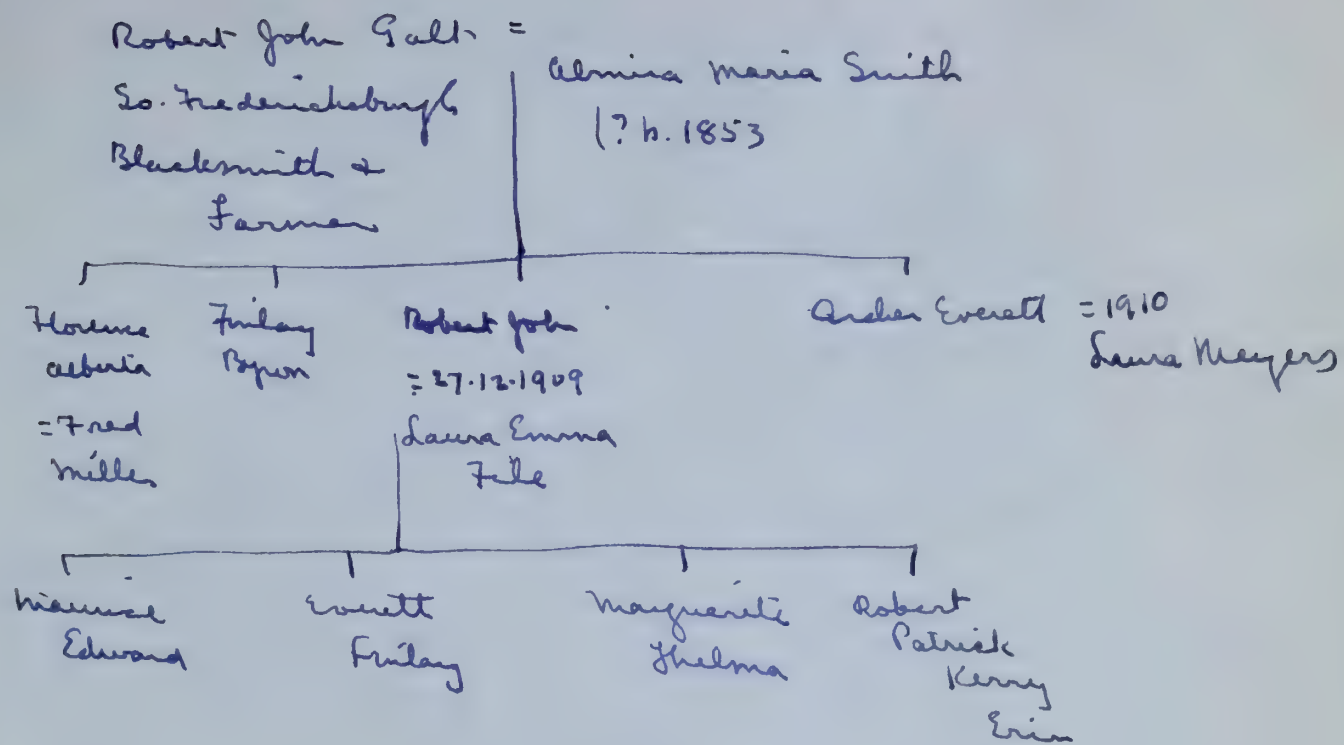 Robert John Galt =
Almira Maria Smith
So. Fredericksburgh
(? b. 1853
Blacksmith &
Farmer
Florence
Alberta
= Fred
Miller
Finlay
Byron
Robert John
= 27.12.1909
Laura Emma
File
Archer Everett = 1910
Laura Meyers
Maurice
Edward
Everett
Finlay
Marguerite
Thelma
Robert
Patrick
Kerry
Erin